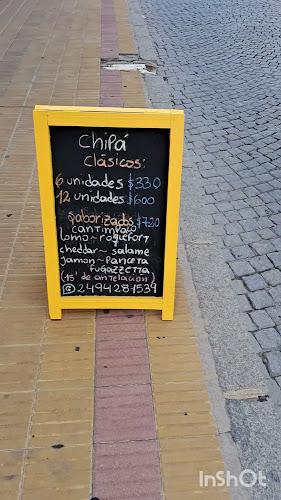 Chipá
clásicos:
6 unidades $330
12 unidades $600
saborizados $720
cantimpalo
lomo ~ roquefort
cheddar ~ salame
jamon ~ panceta
fugazzeta
(15' de antelación)
2494281539
InShOt